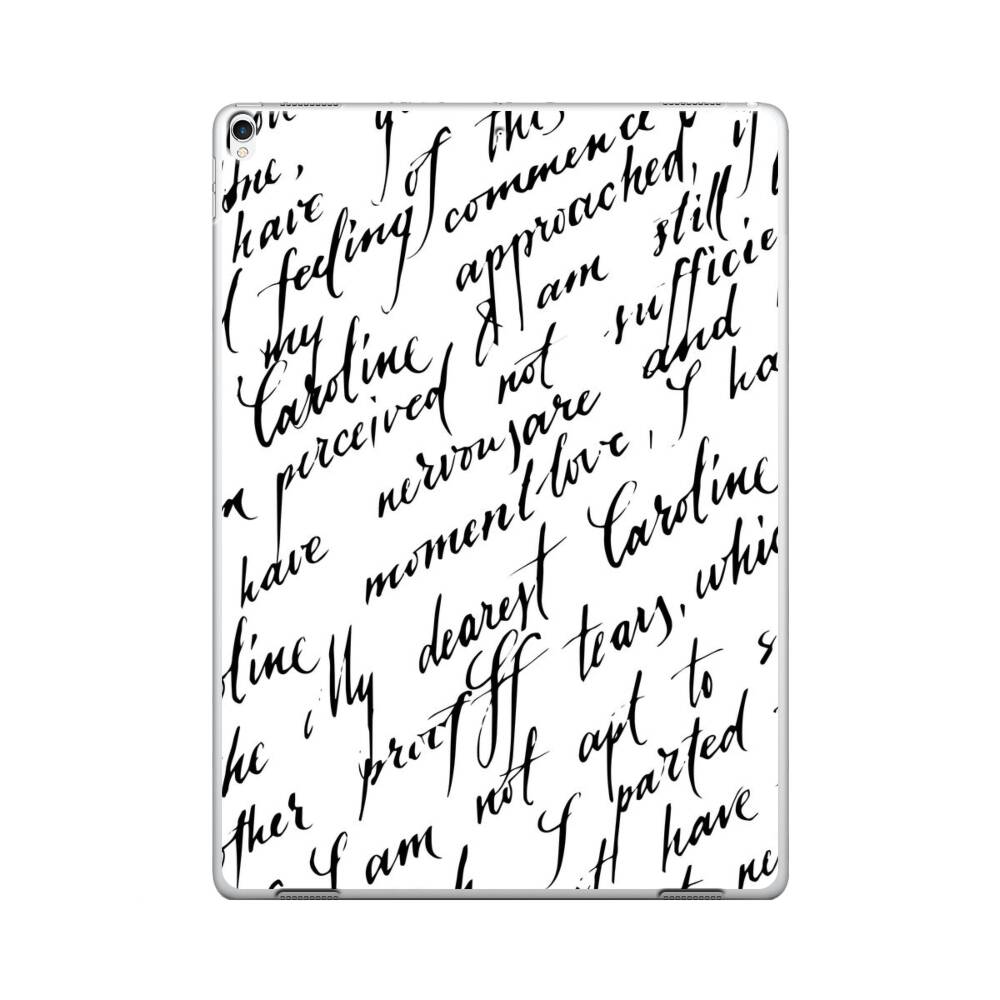 of this
have feeling commence if
my approached,
Caroline & am still
perceived not sufficie
have nervous are and
moment love, I ha
line My dearest Caroline
he proof tears, whic
ther not apt to s
I am I parted
have
ne